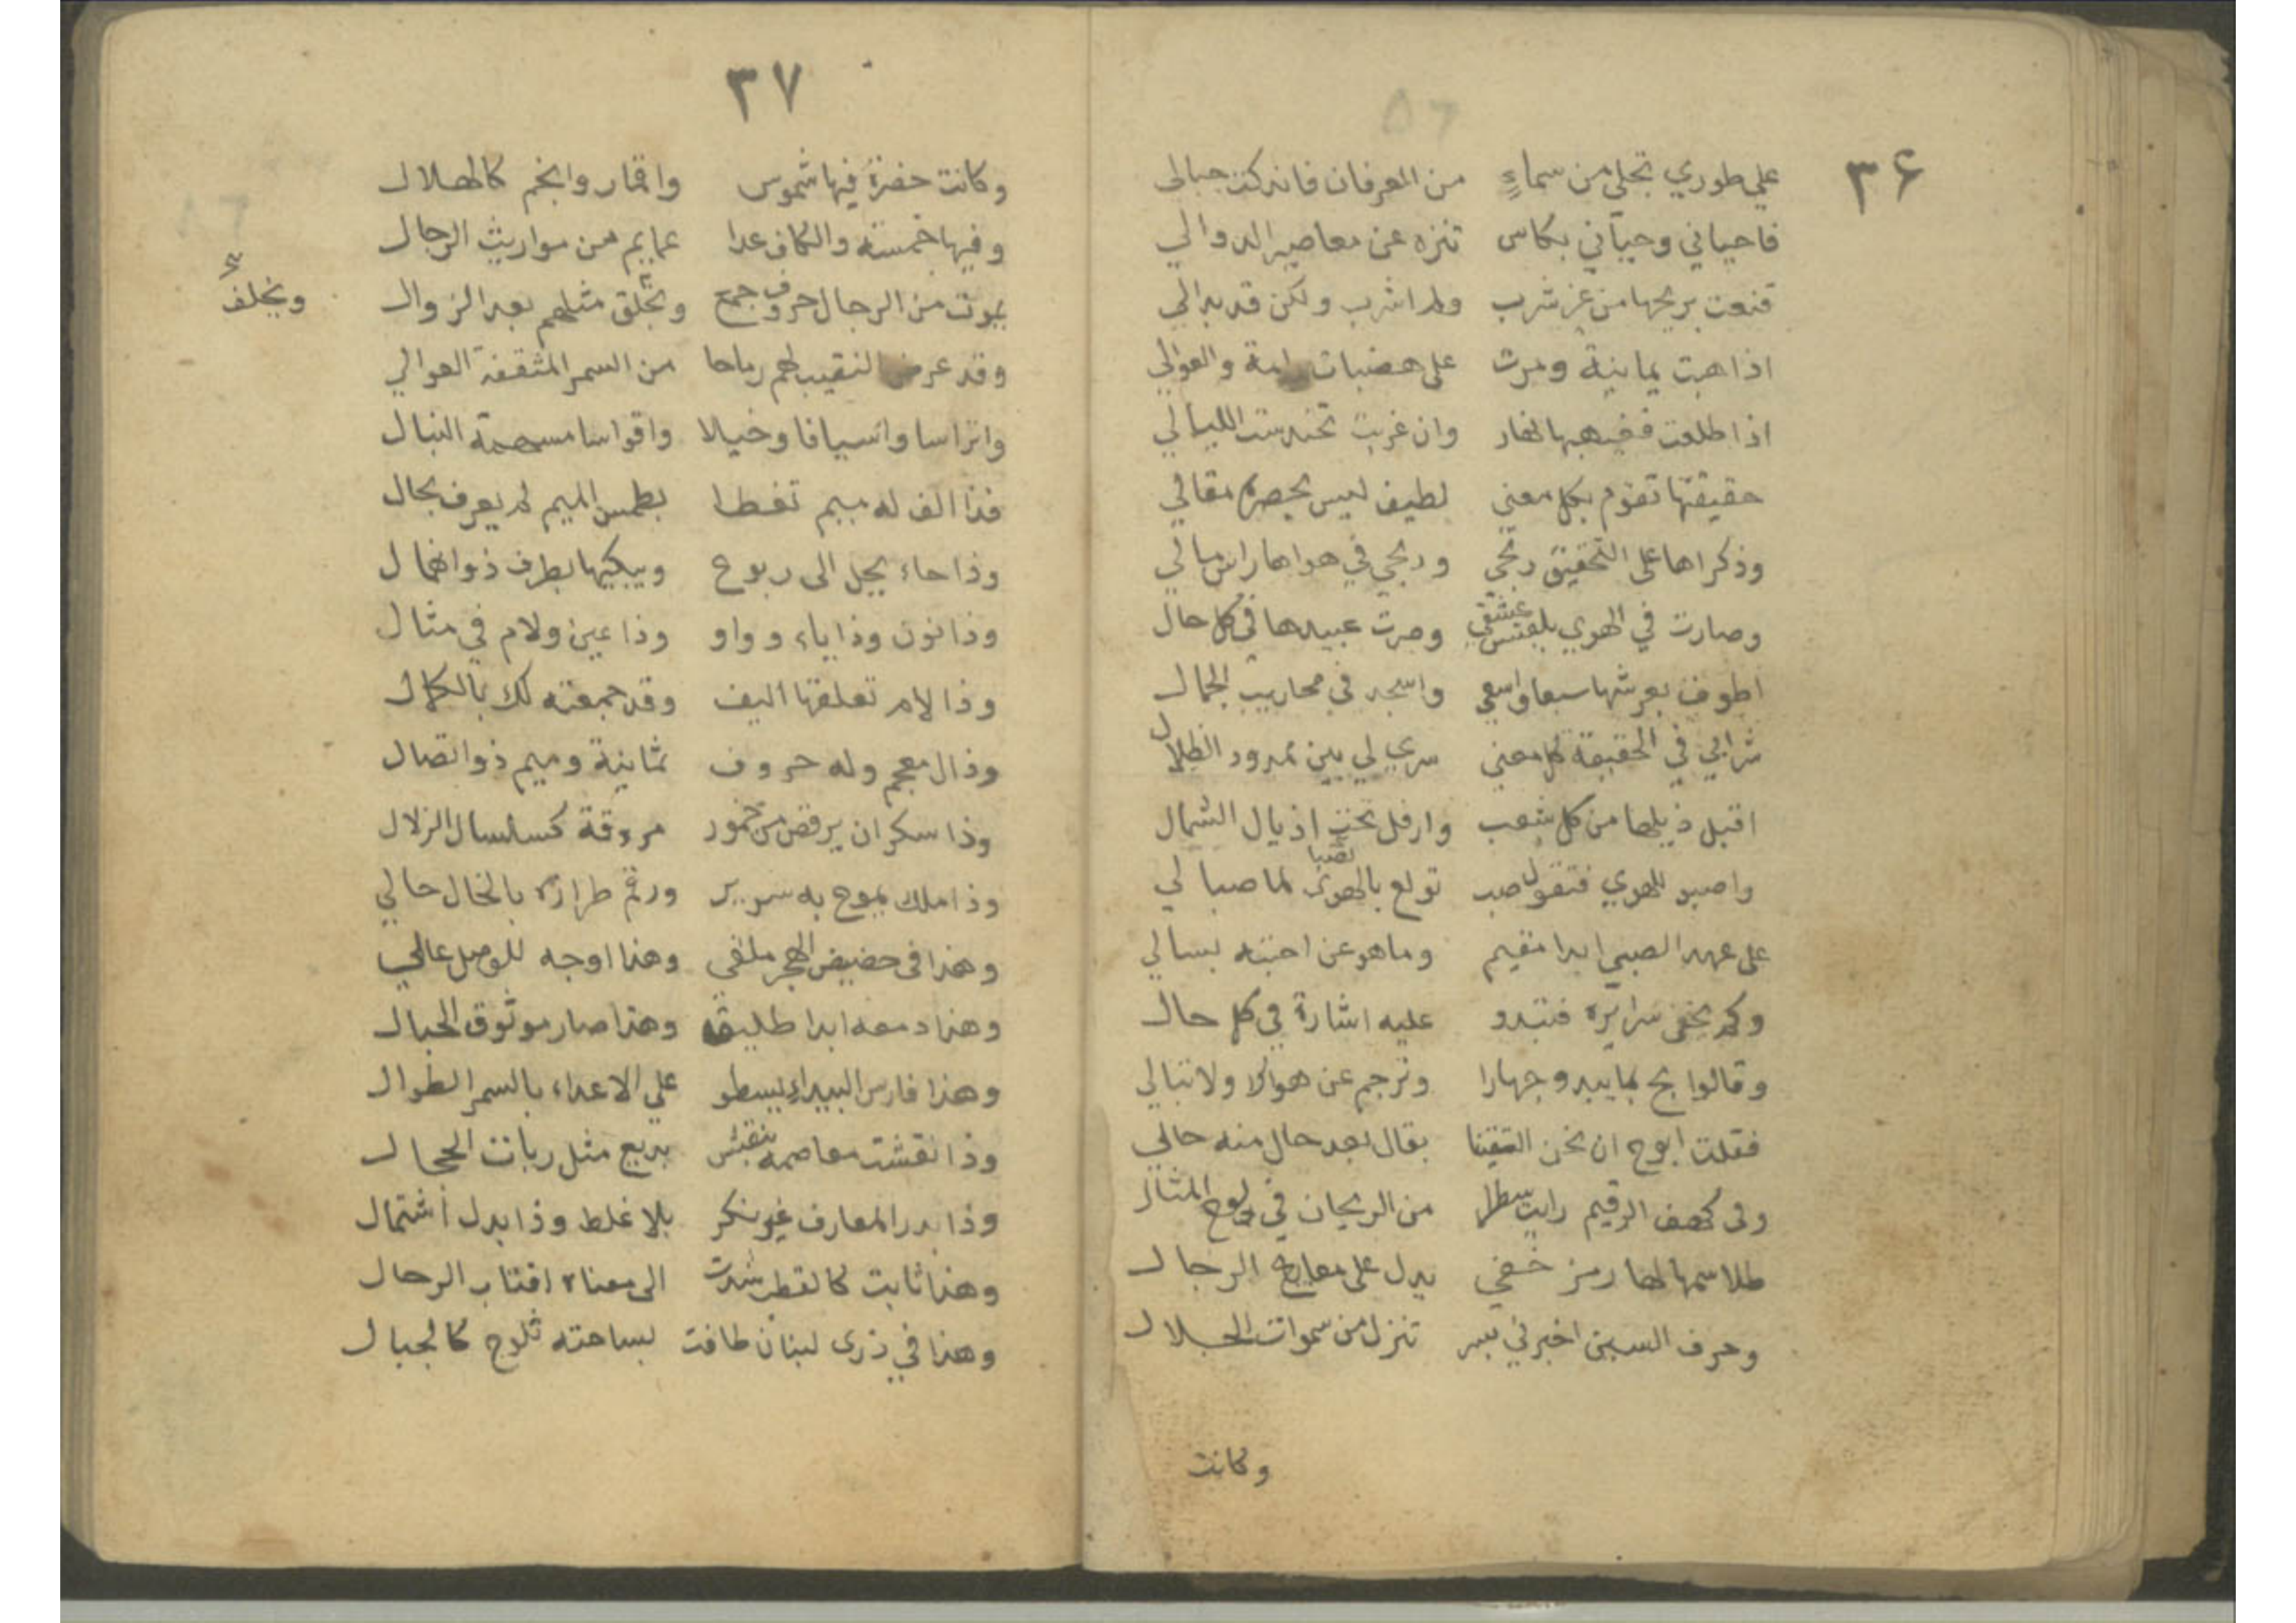 ٣۶
علي طوري تجلى من سماءٍ من العرفان فاندكت جبالى
فاحياني وحيّاني بكاس تنزه عن معاصير الدوالي
قنعت بريحها من غير شرب ولم اشرب ولكن قد بدالي
اذا هبت يمانية ومرت على هضبات رامة والعوالي
اذا طلعت فغيهبها نهار وان غربت تحندست الليالي
حقيقتها تقوم بكل معني لطيف ليس يحصره مقالي
وذكراها على التحقيق ربحي وربحي في هواها راس مالي
وصارت في الهوي بلقيس عشقي وصرت عبيدها في كل حال
اطوف بعرشها سبعا واسعي واسجد في محاريب الجمال
شرابي في الحقيقة كل معني سري لي بين ممدود الظلال
اقبل ذيلها من كل شعب وارفل تحت اذيال الشمال
واصبو للهوي فتقول صب تولع بالهوى لما صبا لي
على عهد الصبي ابدا مقيم وما هو عن احبته بسالي
وكم يخفى سرايره فتبدو عليه اشارة في كل حال
وقالوا بح بما يبدو جهارا وترجم عن هواك ولا تبالي
فقلت ابوح ان نحن التقينا بقال بعد حال منه حالي
وفى كهف الرقيم رايت سطرا من الريحان في لوح المثال
طلاسمها لها رمز خفي يدل على معاريج الرجال
وحرف السين اخبرني بسر تنزل من سموات الجلال
وكانت
٣٧
وكانت حضرة فيها شموس واقمار وانجم كالهلال
وفيها خمسة والكاف عدا عمايم من مواريث الرجال
يموت من الرجال حروف جمع ويخلق مثلهم بعد الزوال
ويخلف
وقد عرض النقيب لهم رماحا من السمر المثقفة العوالي
واتراسا واسيافا وخيالا واقواسا مسهمة النبال
فذا الف له ميم تغطا بطمس الميم لم يعرف بحال
وذا حاء يحل الى ربوع ويبكيها بطرف ذو انهمال
وذا نون وذا ياء وواو وذا عين ولام في مثال
وذا لام تعلقها اليف وقد جمعته لك بالكمال
وذال معجم وله حروف ثمانية وميم ذو اتصال
وذا سكران يرقص من خمور مروقة كسلسال الزلال
وذا ملك يموج به سرير ورقم طرازه بالخال حالي
وهذا في حضيض الهجر ملقى وهذا اوجه للوصل عالي
وهذا دمعه ابدا طليق وهذا صار موثوق الحبال
وهذا فارس البيداء يسطو علي الاعداء بالسمر الطوال
وذا نقشت معاصمه بنقش بديع مثل ربات الحجال
وذا بدر المعارف غير نكر بلا غلط وذا بدل اشتمال
وهذا ثابت كالقطب شدت الى معناه اقتاب الرحال
وهذا في ذرى لبنان طافت بساحته ثلوج كالجبال